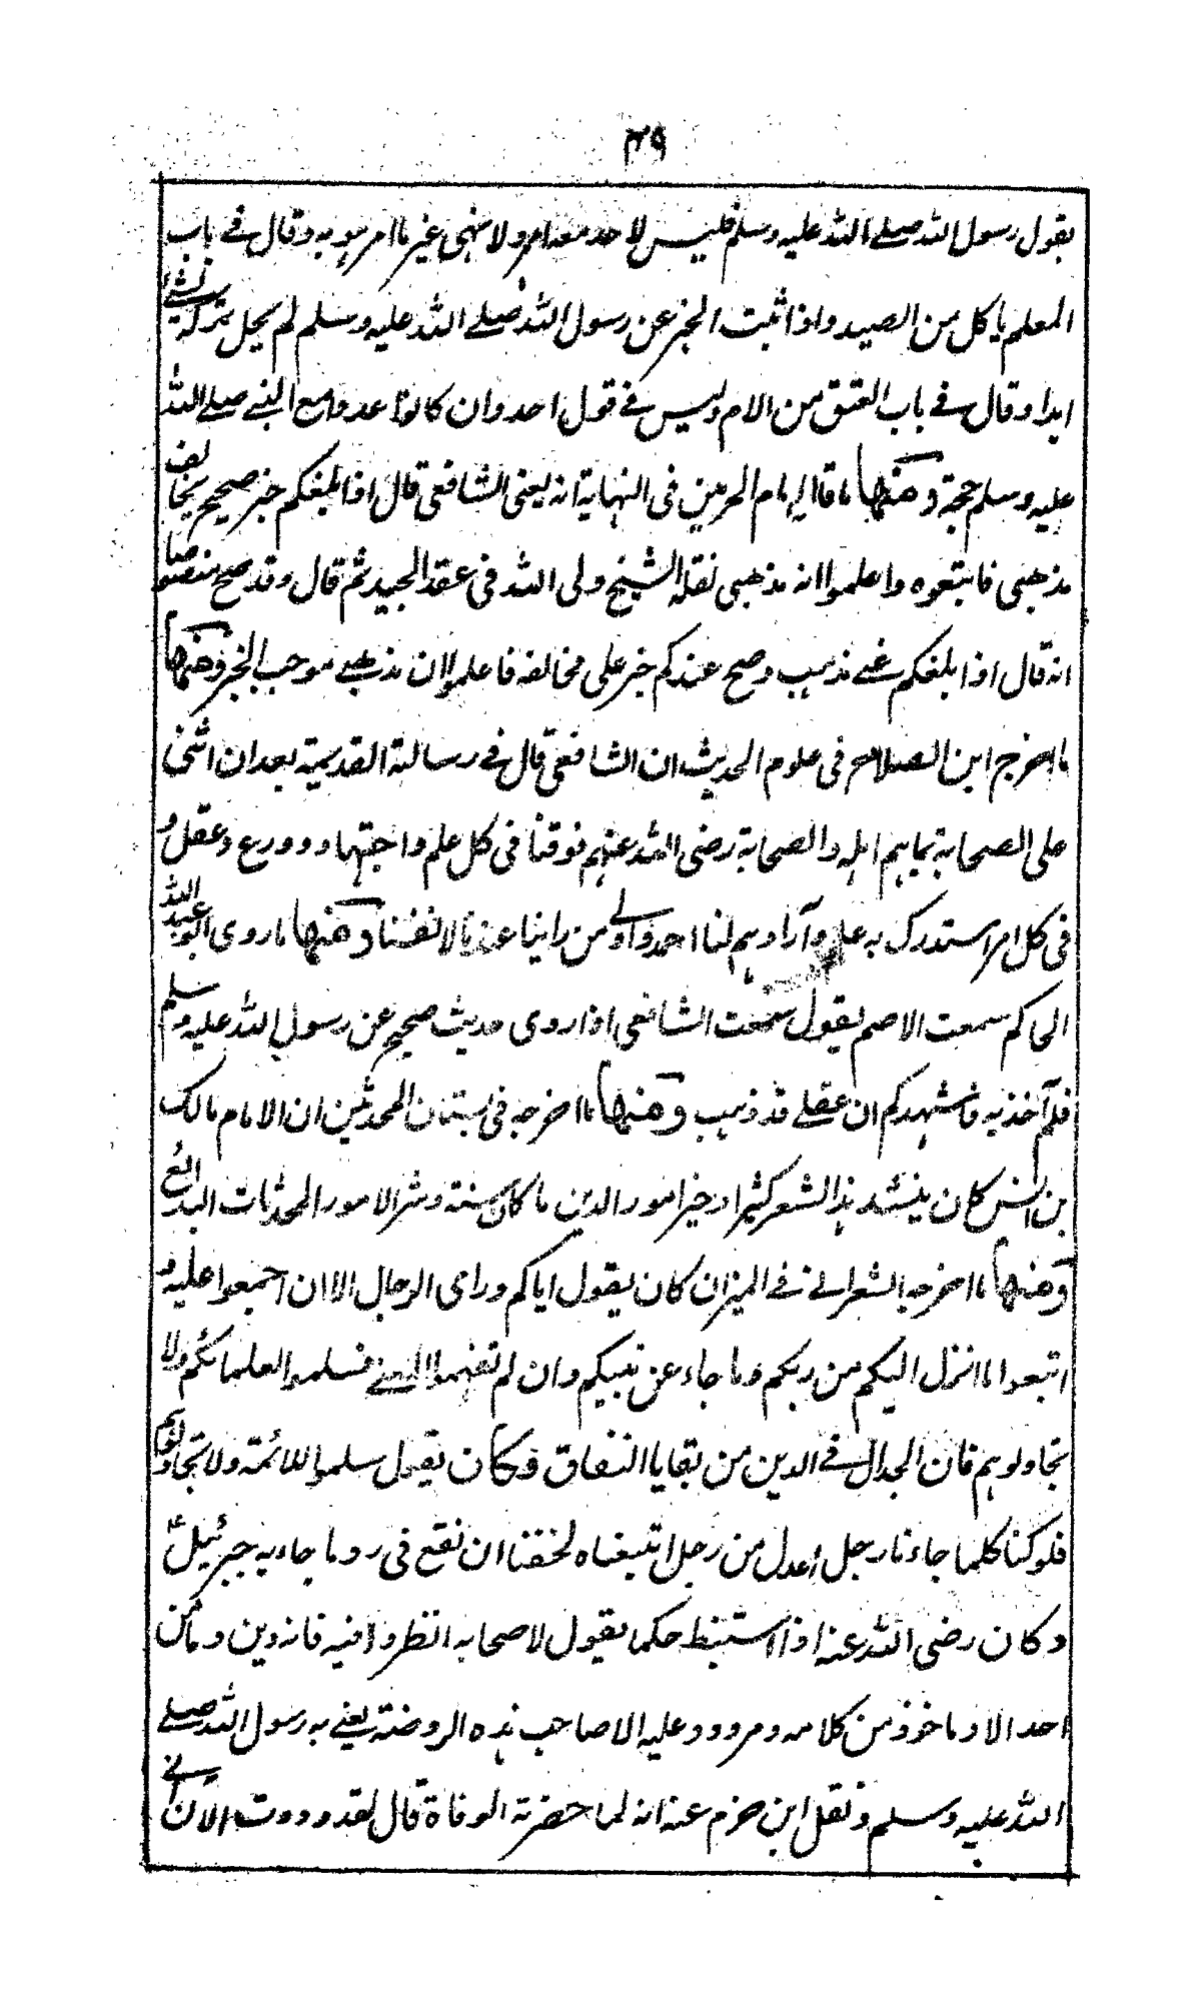 ٣٩
بقول رسول الله صلے الله عليه وسلم فليس لاحد معه امر ولا نهى غير ما امر هو به وقال فے باب
المعلم ياكل من الصيد واذا ثبت الخبر عن رسول الله صلے الله عليه وسلم لم يحل تركه لشئ
ابدا وقال فے باب العتق من الام وليس فے قول احد وان كانوا عددا مع النبے صلے الله
عليه وسلم حجة ومنها ما قال امام الحرمين فى النهاية انه يعنى الشافعى قال اذا بلغكم خبر صحيح يخالف
مذهبى فاتبعوه واعلموا انه مذهبى نقله الشيخ ولى الله فى عقد الجيد ثم قال وقد صح منصوصا
انه قال اذا بلغكم عنے مذهب وصح عندكم خبر على مخالفه فاعلموا ان مذهبے موجب الخبر ومنها
ما اخرج ابن الصلاح فى علوم الحديث ان الشافعى قال فے رسالته القديمة بعد ان اثنى
على الصحابة بما هم اهله والصحابة رضى الله عنهم فوقنا فى كل علم واجتهاد وورع وعقل و
فى كل امر استدرك به علم وآراؤهم لنا احمد واولے من راينا عندنا لانفسنا ومنها ما روى ابو عبد الله
الحاكم سمعت الاصم يقول سمعت الشافعى اذا روى حديث صحيح عن رسول الله عليه وسلم
فلم آخذ به فاشهدكم ان عقلے قد ذهب ومنها ما اخرجه فى بستان المحدثين ان الامام مالك
بن انس كان ينشد هذا الشعر كثيرا وخير امور الدين ما كان سنة وشر الامور المحدثات البدائع
ومنها ما اخرجه الشعرانے فے الميزان كان يقول اياكم وراى الرجال الا ان اجمعوا عليه و
اتبعوا ما انزل اليكم من ربكم وما جاء عن نبيكم وان لم تفهموا المعنے فسلموا لعلمائكم ولا
تجادلوهم فان الجدال فے الدين من بقايا النفاق وكان يقول سلموا للائمة ولا تجادلوهم
فلو كنا كلما جاءنا رجل اعدل من رجل اتبعناه لخفنا ان نقع فى رد ما جاء به جبرئيلؑ
وكان رضى الله عنه اذا استنبط حكما يقول لاصحابه انظروا فيه فانه دين وما من
احد الا وماخوذ من كلامه ومردود عليه الا صاحب هذه الروضة يعنے به رسول الله صلے
الله عليه وسلم ونقل ابن حزم عنه انه لما حضرته الوفاة قال لقد وددت الآن انے